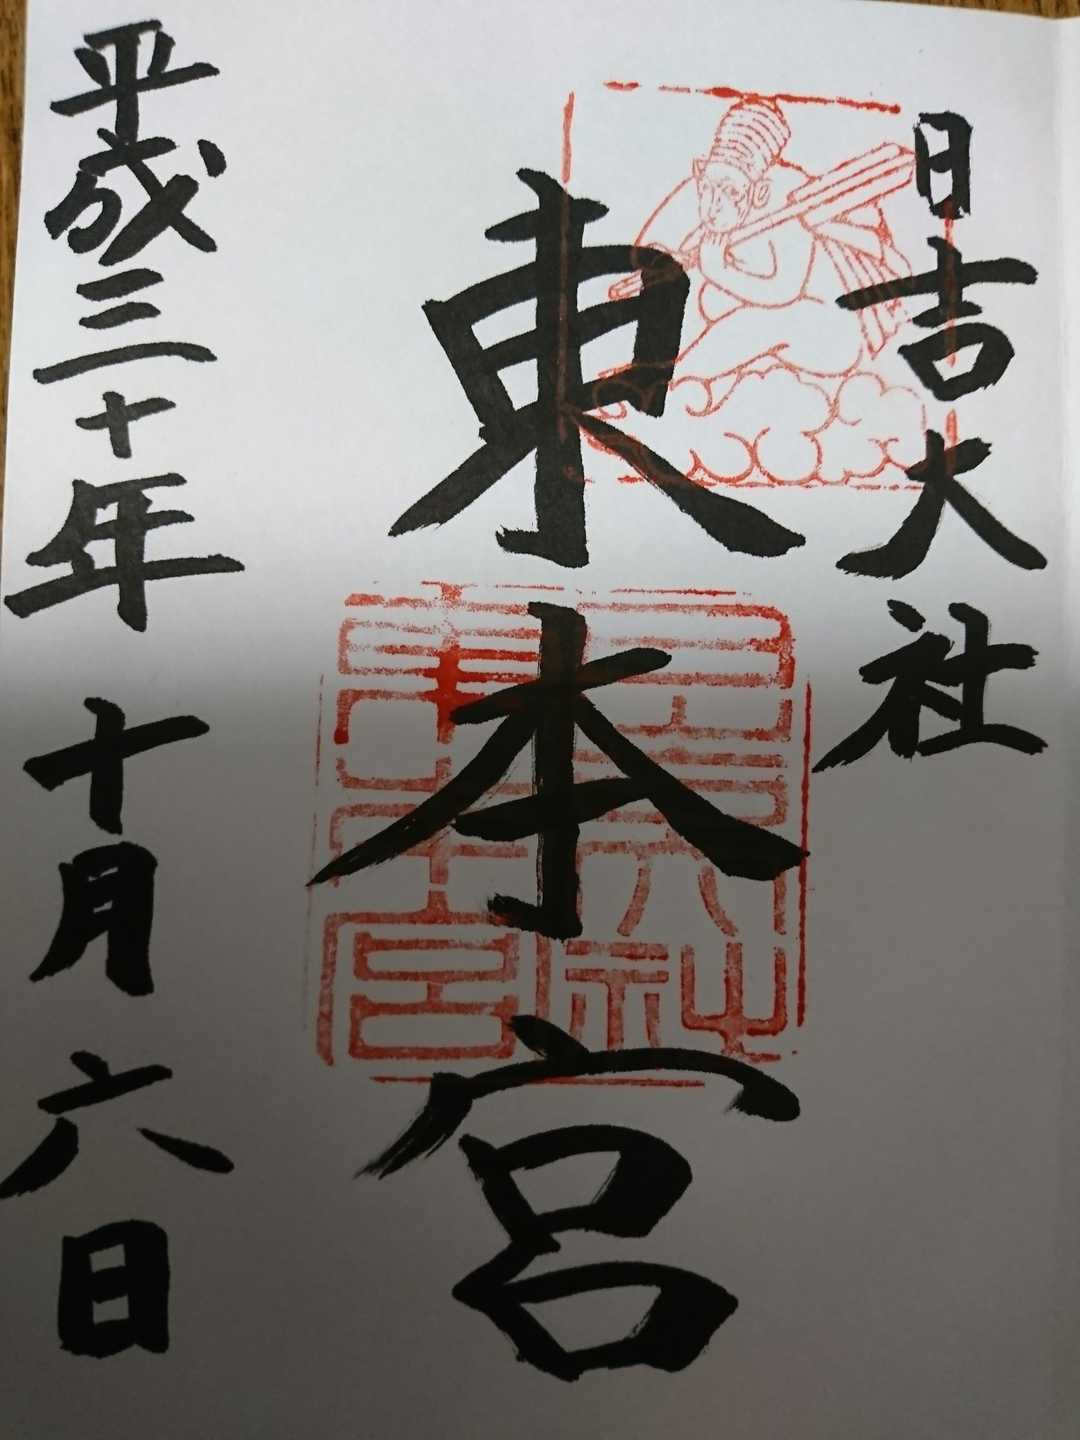 日吉大社
東本宮
平成三十年 十月六日
日吉大社
東本宮